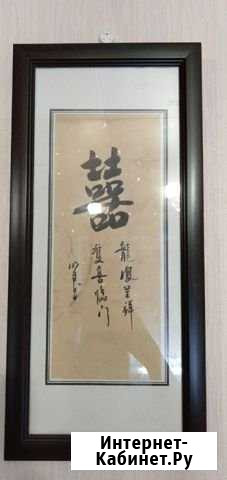 囍
龍鳳呈祥
雙喜臨門
Интернет-
Кабинет.Ру